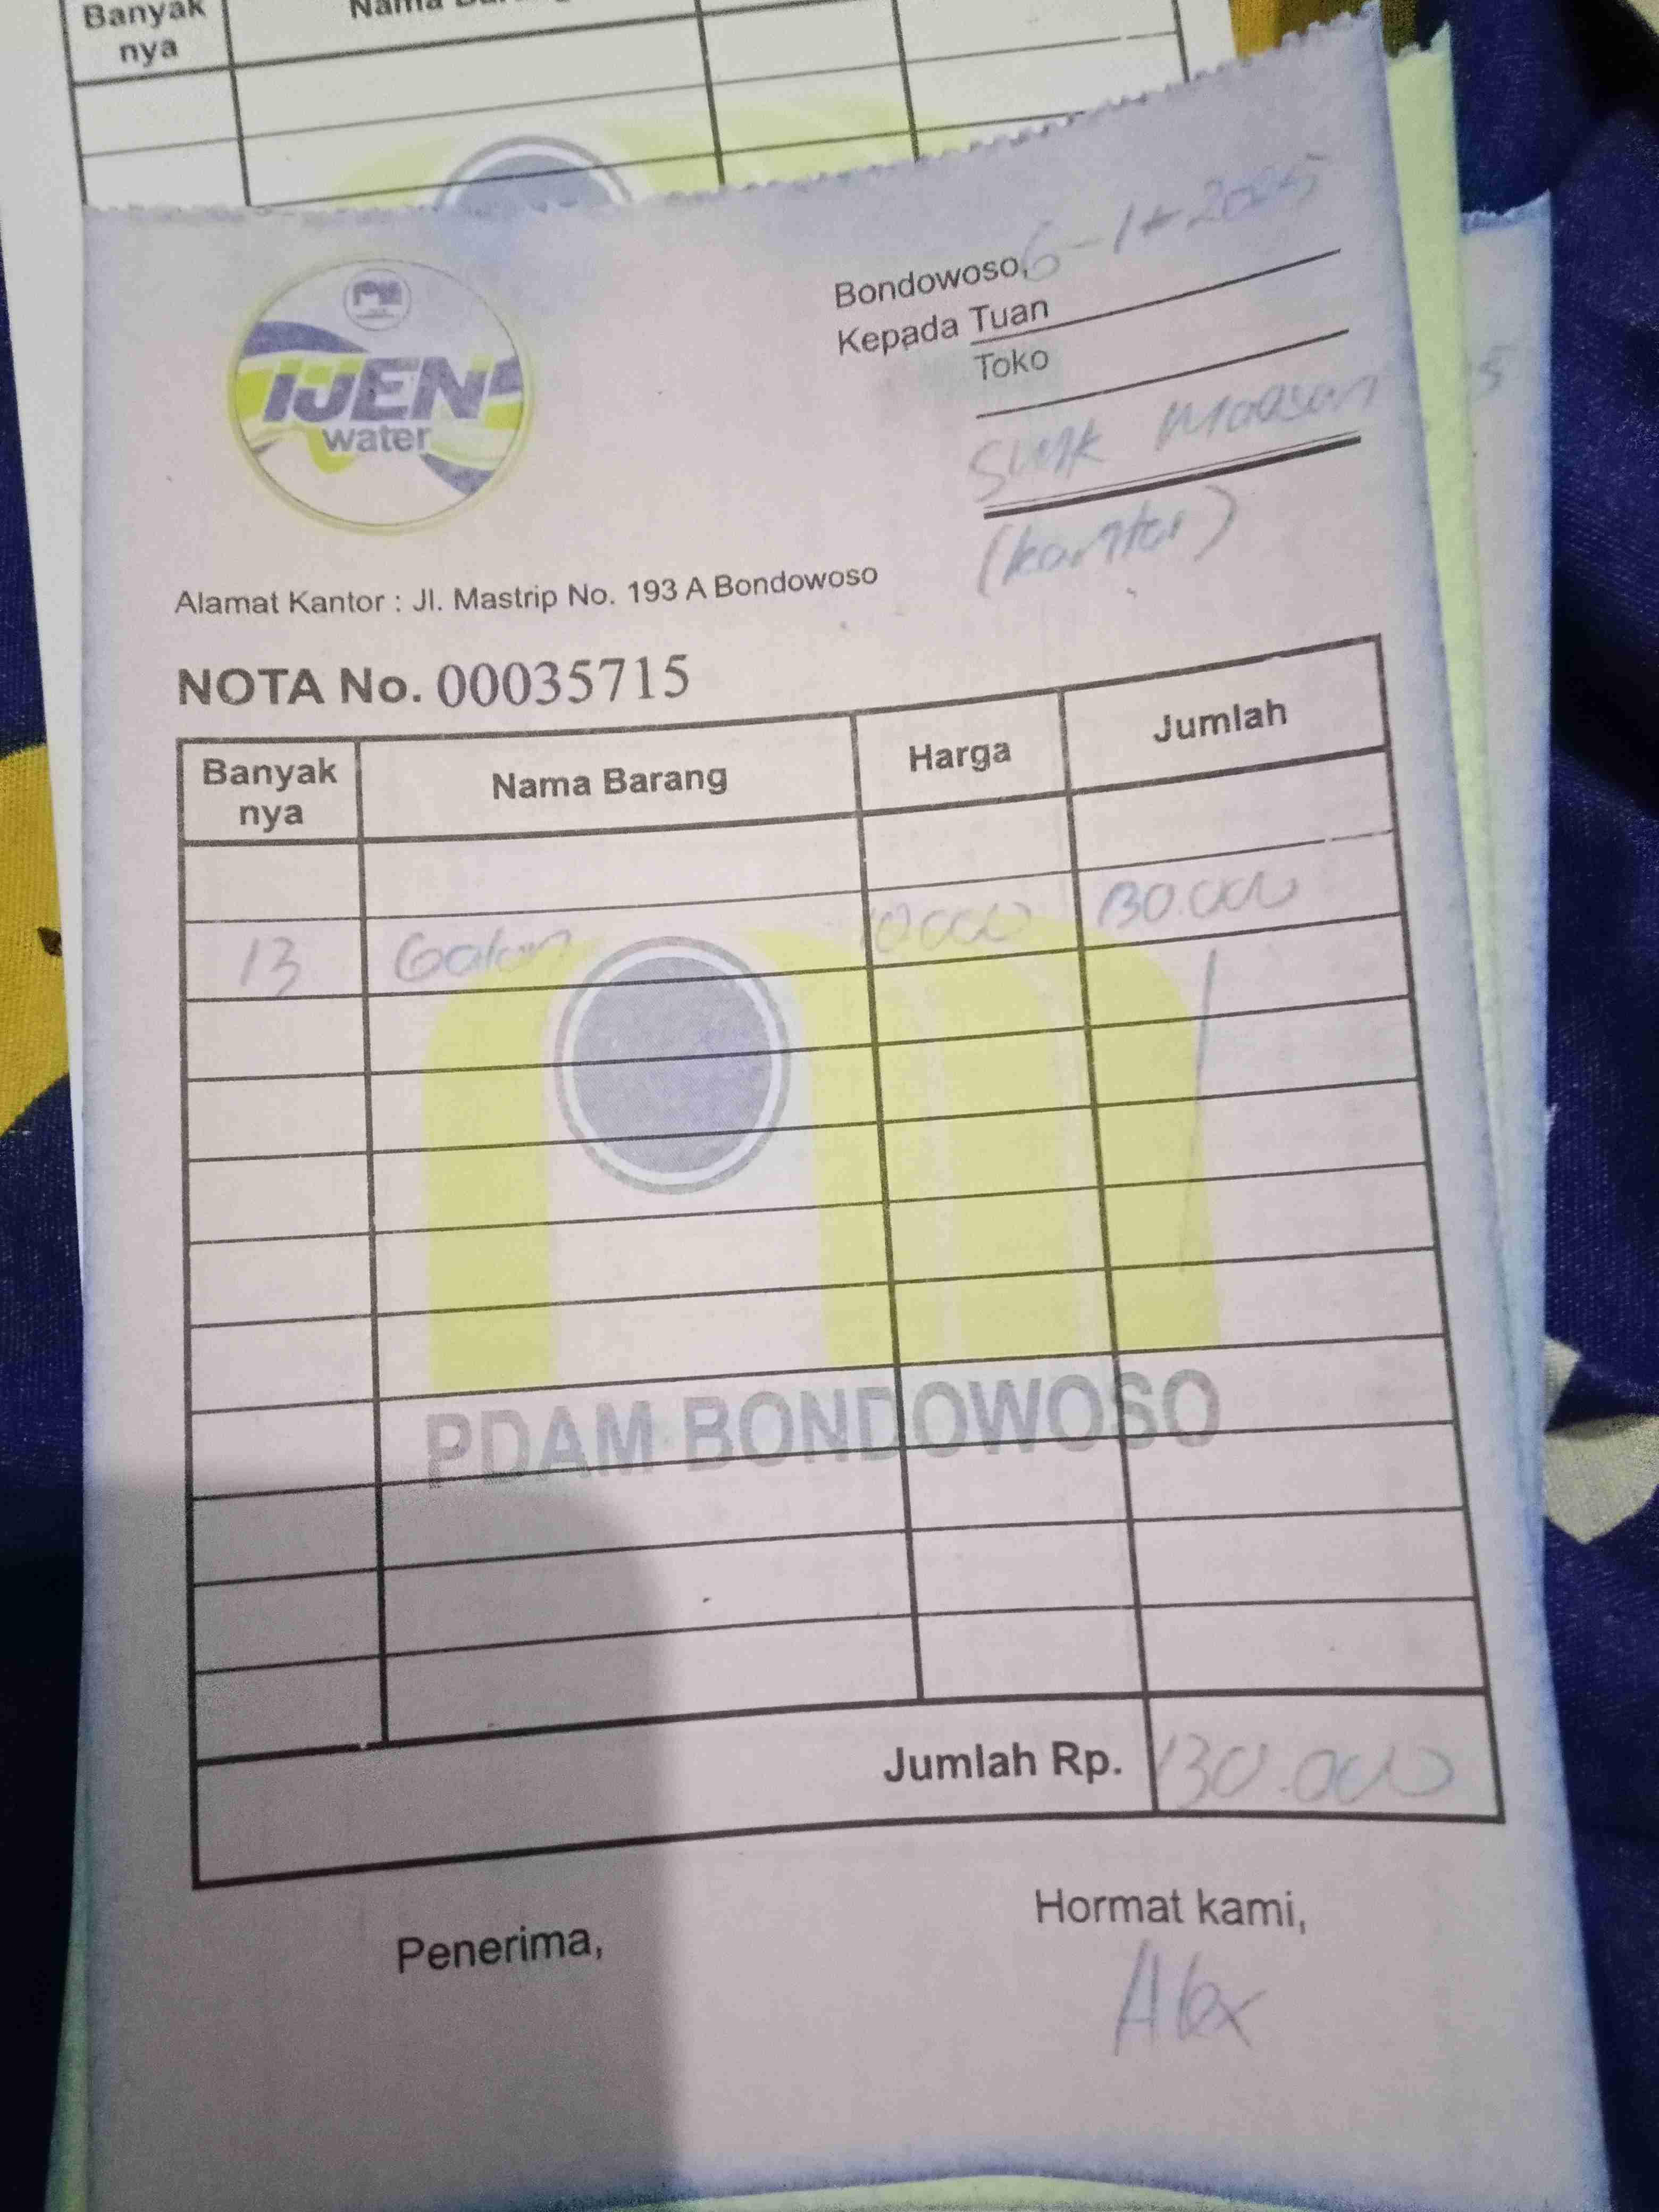 Banyak
nya
IJEN
water
Bondowoso, 6-1
Kepada Tuan
Toko
SMK Maesan
(kantor)
Alamat Kantor : Jl. Mastrip No. 193 A Bondowoso
NOTA No. 00035715
Banyak nya Nama Barang Harga Jumlah
13 Galon 10000 130.000
PDAM BONDOWOSO
Jumlah Rp. 130.000
Penerima, Hormat kami,
Alex